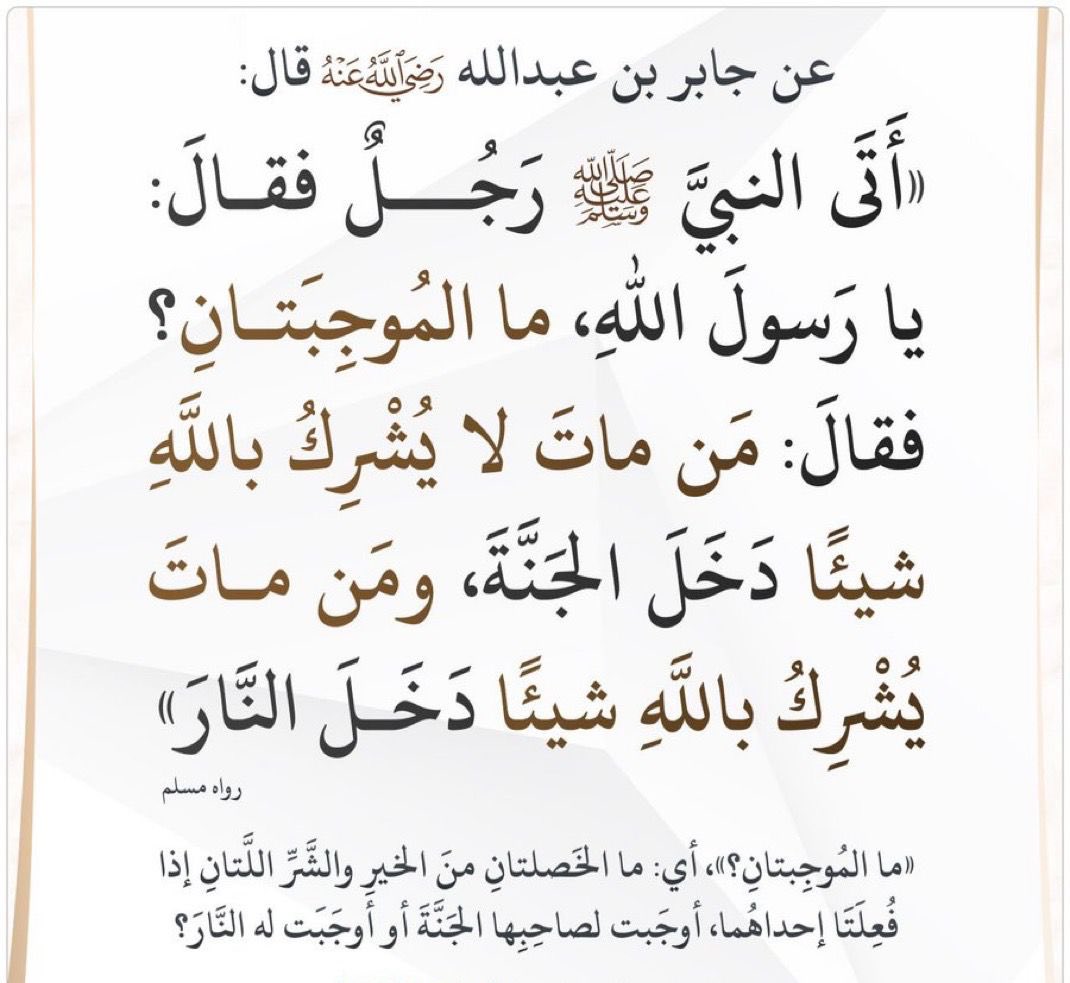 عن جابر بن عبدالله رَضِيَ ٱللَّهُ عَنْهُ قال:
«أَتَى النبيَّ ﷺ رَجُـــلٌ فقـالَ:
يا رَسولَ اللهِ، ما المُوجِبَتـانِ؟
فقالَ: مَن ماتَ لا يُشْرِكُ باللَّهِ
شيئًا دَخَلَ الجَنَّةَ، ومَن مـاتَ
يُشْرِكُ باللَّهِ شيئًا دَخَـلَ النَّارَ»
رواه مسلم
«ما المُوجِبتانِ؟»، أي: ما الخَصلتانِ منَ الخيرِ والشَّرِّ اللَّتانِ إذا
فُعِلَتَا إحداهُما، أوجَبت لصاحِبِها الجَنَّةَ أو أوجَبَت له النَّارَ؟